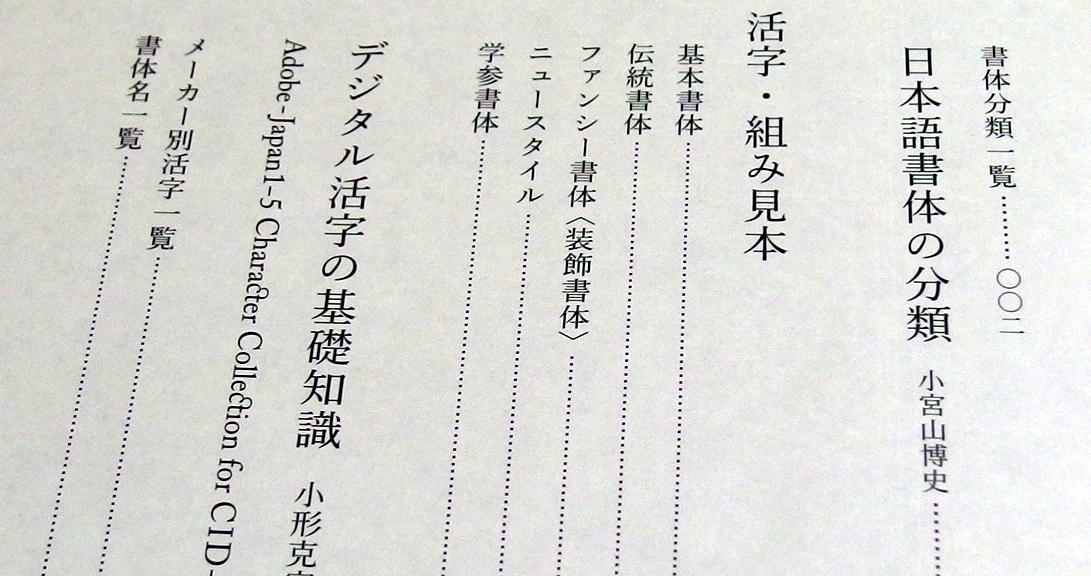 書体分類一覧………〇〇二
日本語書体の分類 小宮山博史
活字・組み見本
基本書体
伝統書体
ファンシー書体〈装飾書体〉
ニュースタイル
学参書体
デジタル活字の基礎知識 小形克
Adobe-Japan1-5 Character Collection for CID-
メーカー別活字一覧
書体名一覧